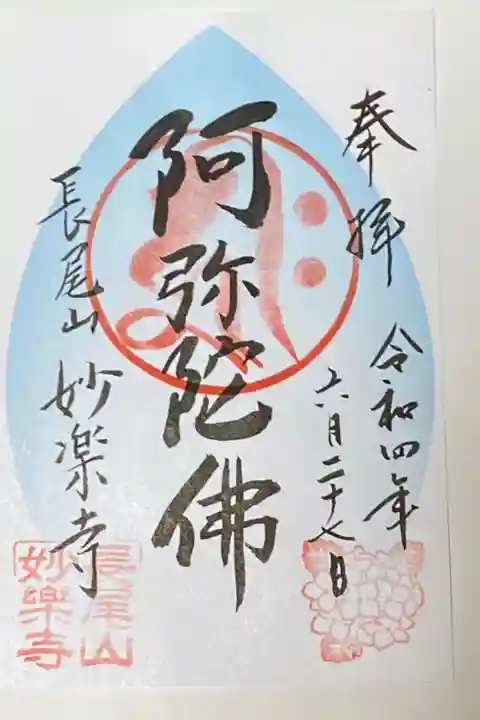 奉拝
令和四年
六月二十八日
阿弥陀佛
長尾山 妙楽寺
長尾山
妙樂寺